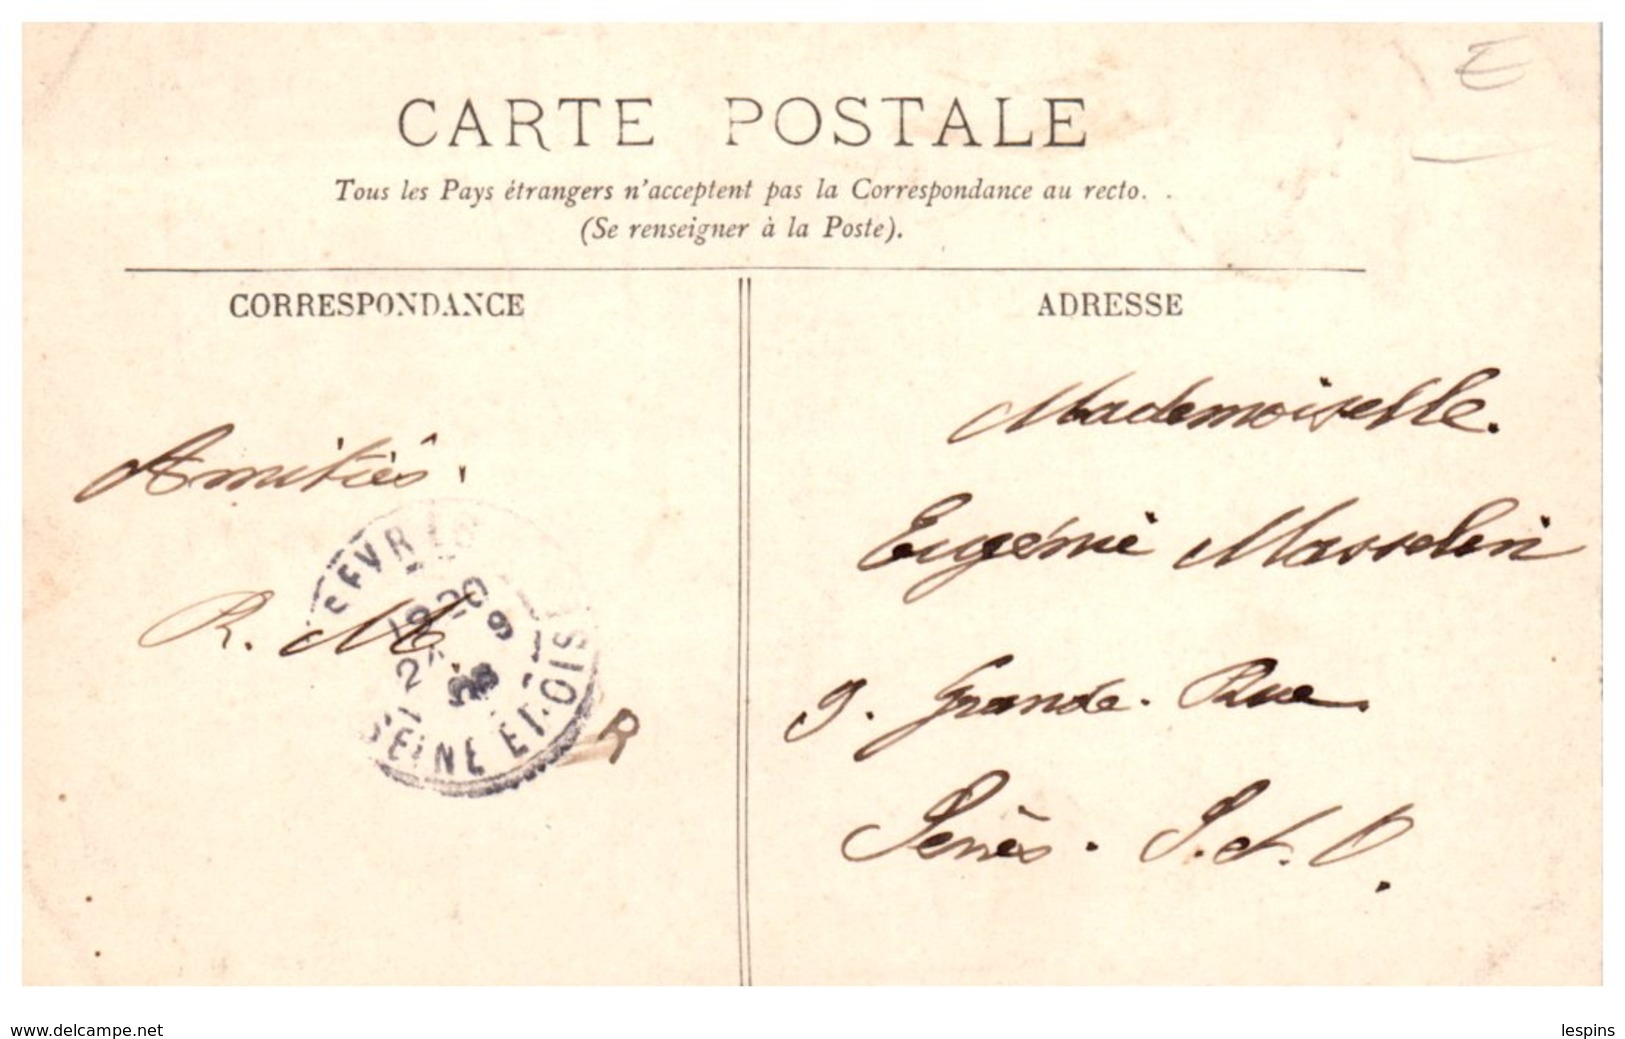 E
CARTE POSTALE
Tous les Pays étrangers n'acceptent pas la Correspondance au recto.
(Se renseigner à la Poste).
CORRESPONDANCE
ADRESSE
Amitiés.
R. M.
SEINE ET OISE
R
Mademoiselle.
Eugénie Masselin
9. Grande. Rue.
S. et. O.
www.delcampe.net
lespins